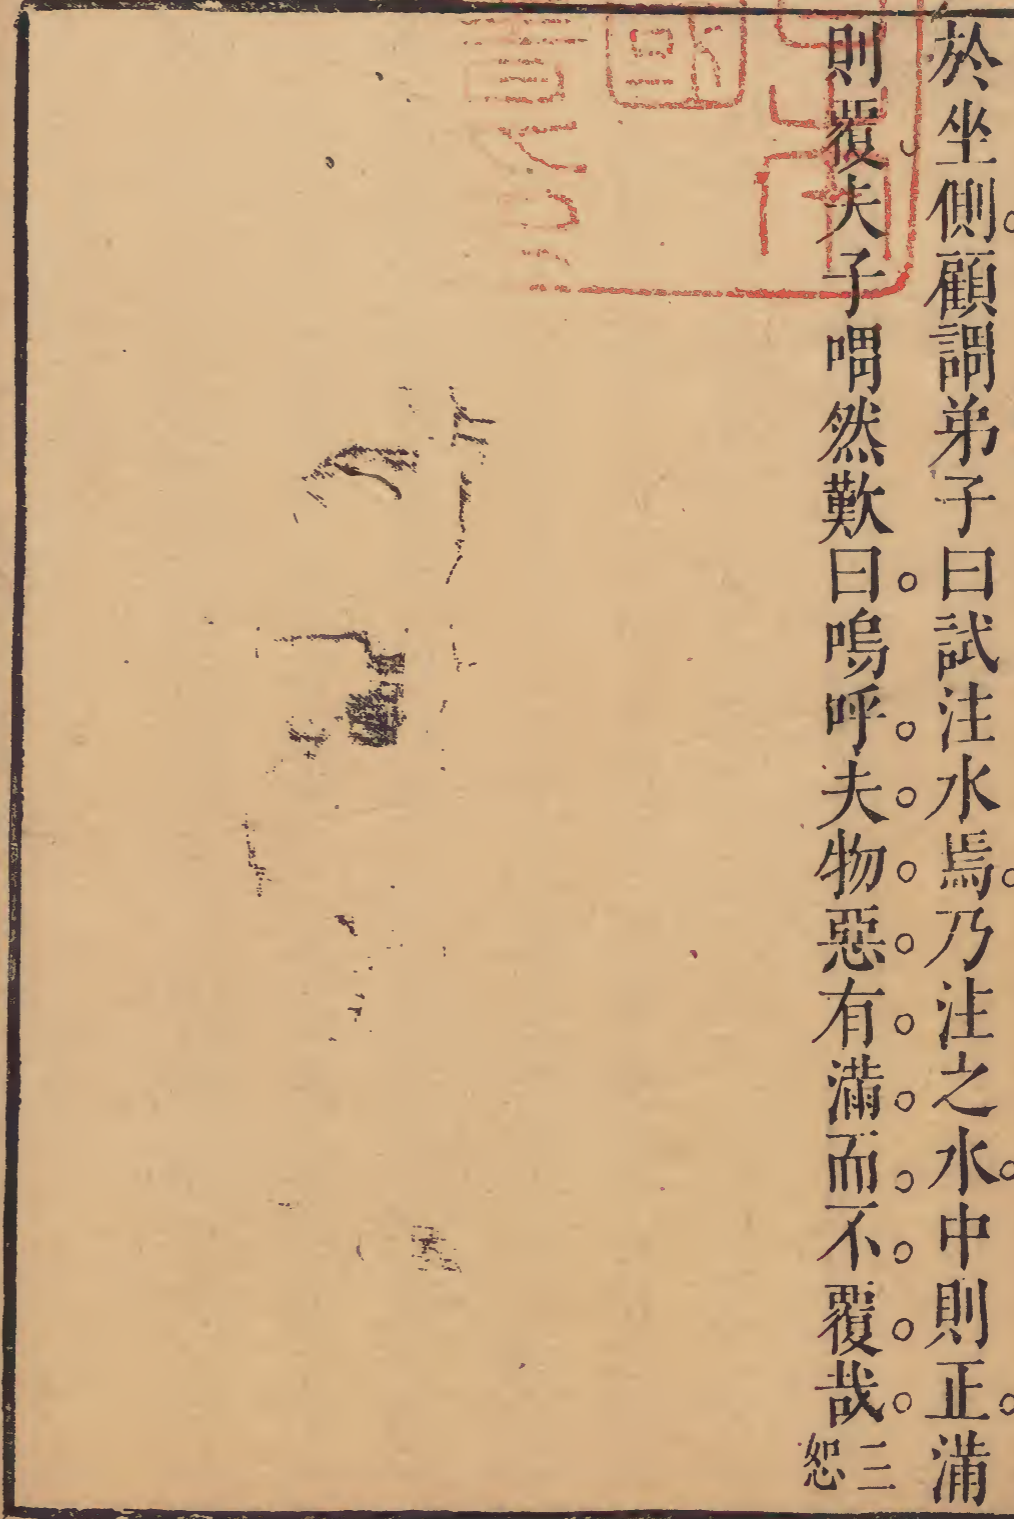 於坐側。顧謂弟子曰試注水焉。乃注之水。中則正。滿
則覆夫子喟然歎曰。嗚呼。夫。物。惡。有。滿。而。不。覆。哉。三恕